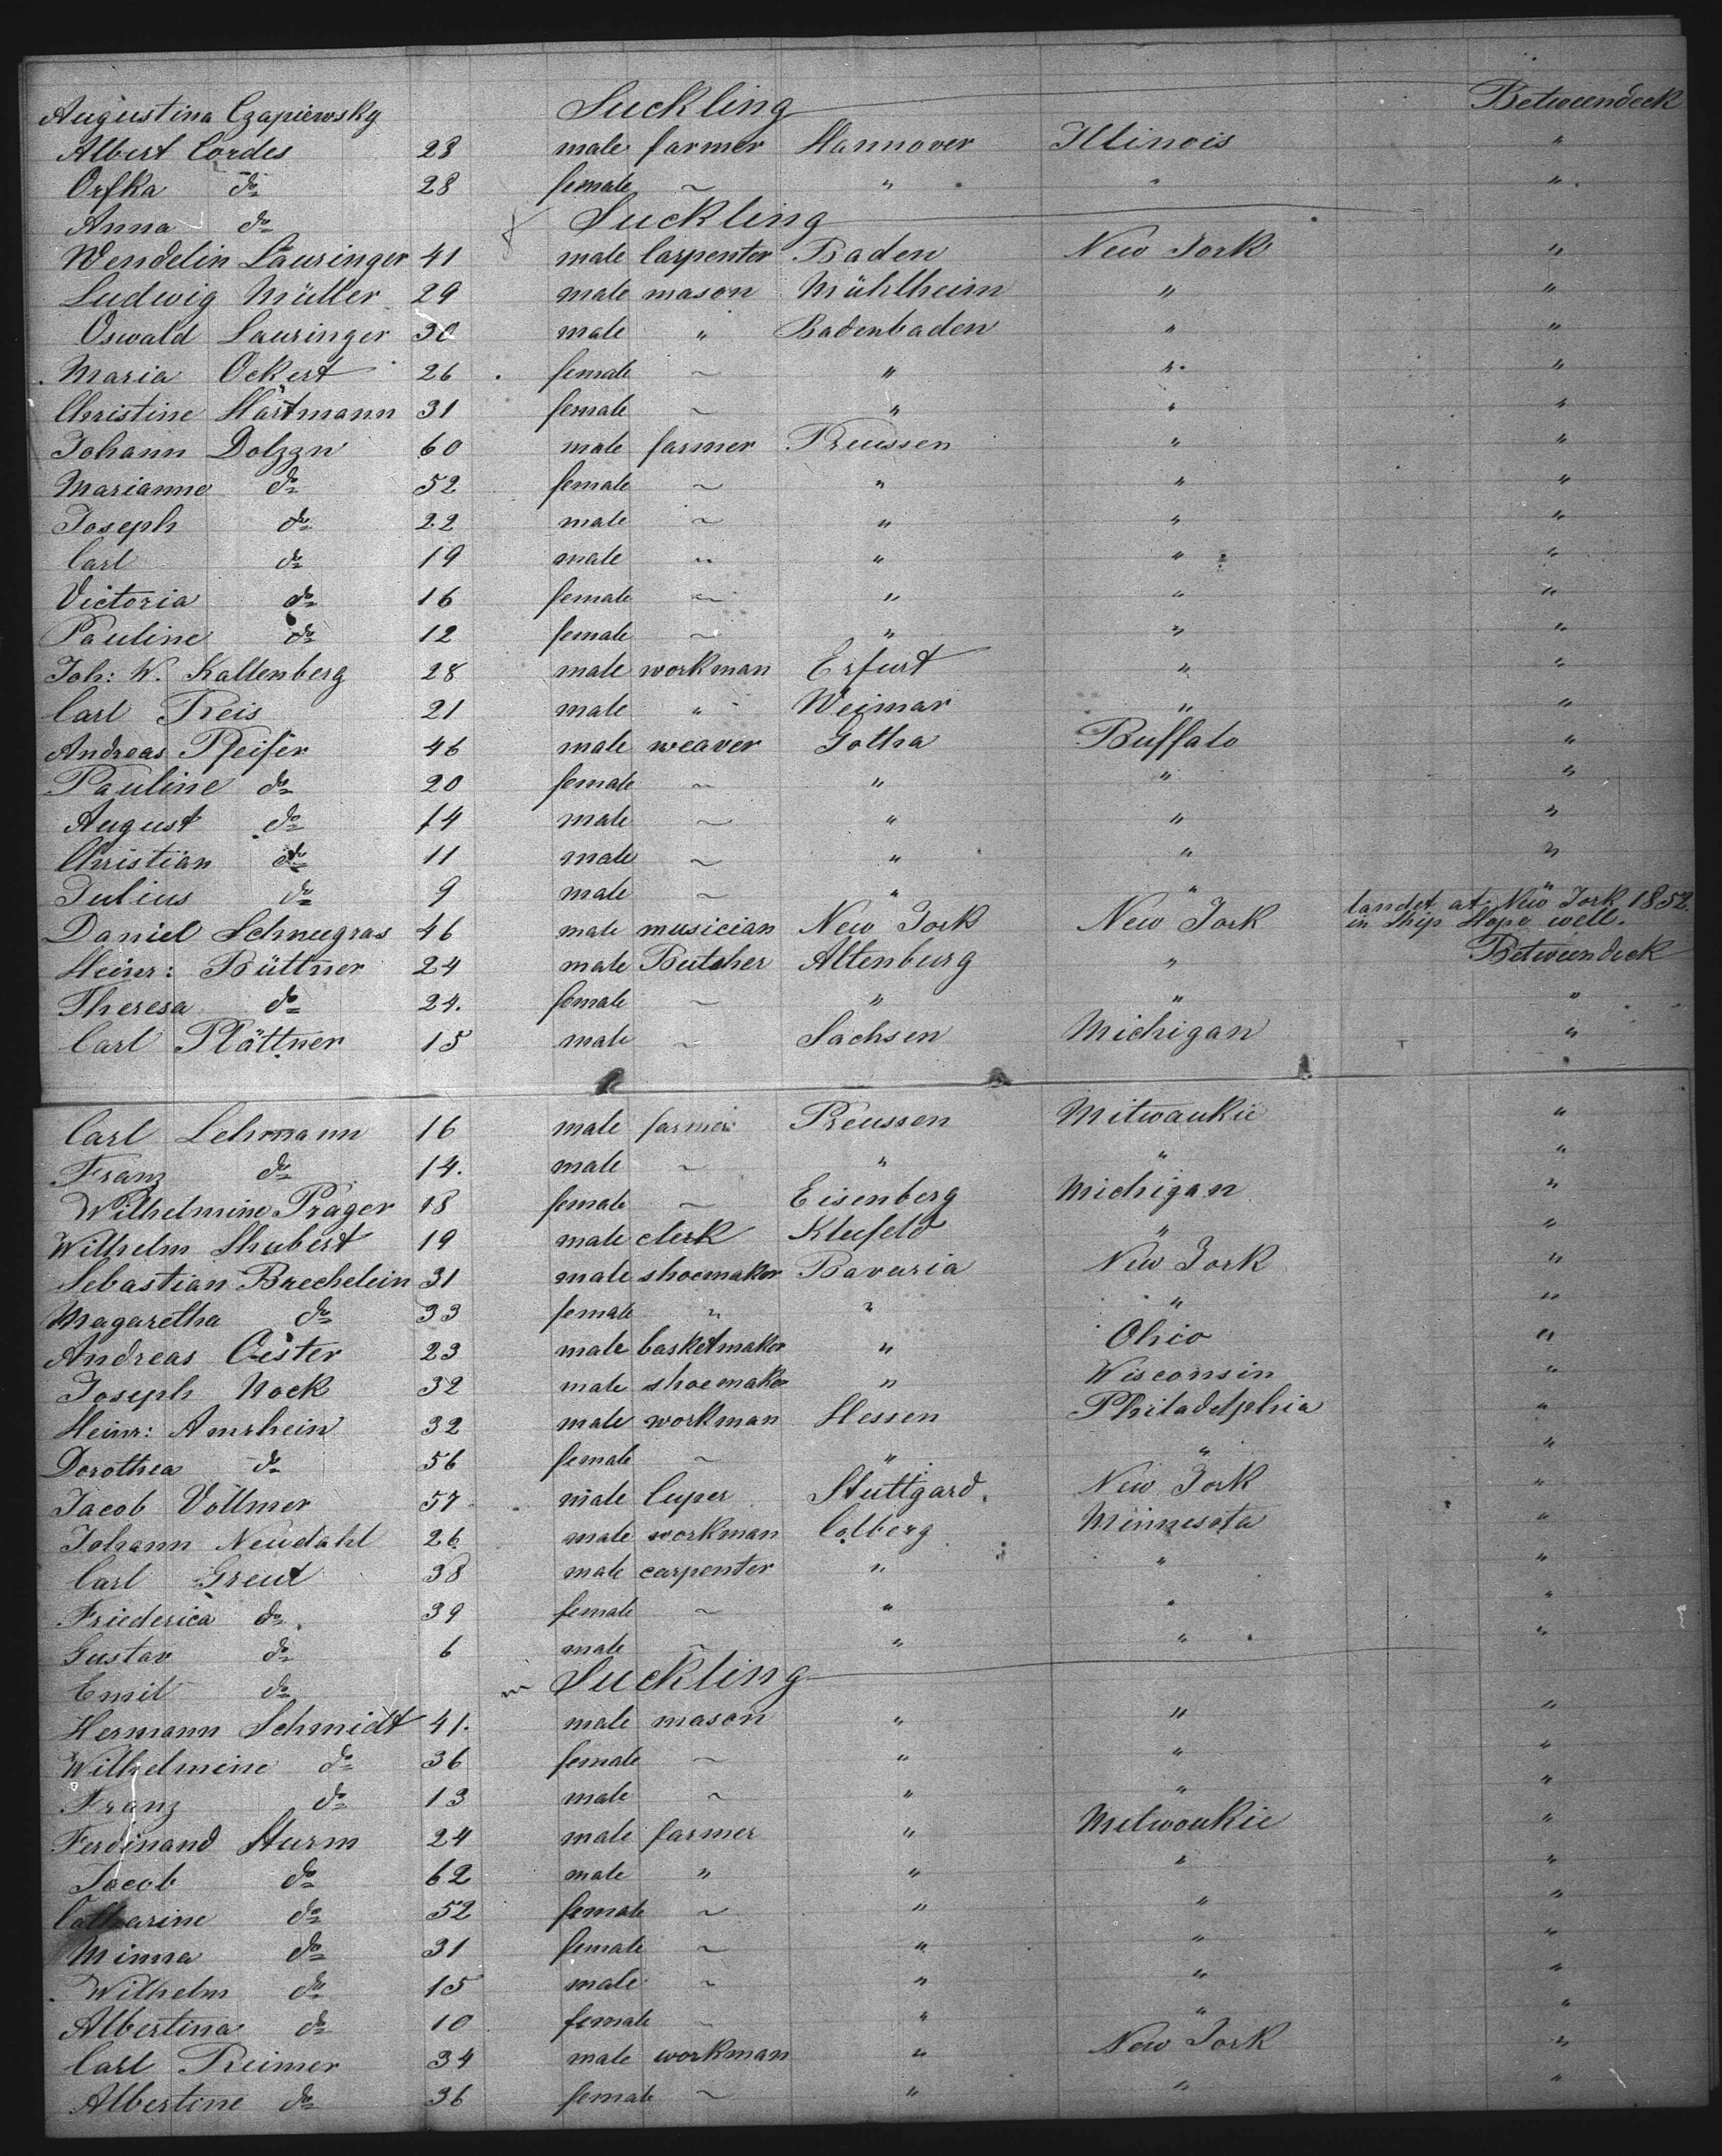 Augustina Czapiewsky Suckling Betweendeck
Albert Cordes 28 male farmer Hannover Illinois "
Orfka do 28 female ~ " " "
Anna do Suckling
Wendelin Lauringer 41 male Carpenter Baden New York "
Ludwig Müller 29 male mason Mühlheim " "
Oswald Lauringer 30 male " Badenbaden " "
Maria Ockert 26 female ~ " " "
Christine Hartmann 31 female ~ " " "
Johann Dolzzn 60 male farmer Preussen " "
Marianne do 52 female ~ " " "
Joseph do 22 male ~ " " "
Carl do 19 male ~ " " "
Victoria do 16 female ~ " " "
Pauline do 12 female ~ " " "
Joh: W. Kaltenberg 28 male workman Erfurt " "
Carl Reis 21 male " Weimar " "
Andreas Pfeifer 46 male weaver Gotha Buffalo "
Pauline do 20 female ~ " " "
August do 14 male ~ " " "
Christian do 11 male ~ " " "
Julius do 9 male ~ " " "
Daniel Schneegras 46 male musician New York New York landet at New York 1852. in Ship Hope well.
Heinr: Büttner 24 male Butcher Altenburg " Betweendeck
Theresa do 24. female ~ " " "
Carl Plättner 15 male ~ Sachsen Michigan "
Carl Lehmann 16 male farmer Preussen Milwaukie "
Franz do 14. male ~ " " "
Wilhelmine Prager 18 female ~ Eisenberg Michigan "
Wilhelm Shubert 19 male clerk Klefeld " "
Sebastian Baechelein 31 male shoemaker Bavaria New York "
Magaretha do 33 female " " " "
Andreas Oester 23 male basketmaker " Ohio "
Joseph Nock 32 male shoemaker " Wisconsin "
Heinr: Amrhein 32 male workman Hessen Philadelphia "
Dorothea do 56 female ~ " " "
Jacob Vollmer 57 male Cuper Stuttgard. New York "
Johann Neudahl 26 male workman Colberg Minnesota "
Carl Greut 38 male carpenter " " "
Friederica do 39 female ~ " " "
Gustav do 6 male ~ " " "
Emil do m Suckling
Hermann Schmidt 41. male mason " " "
Wilhelmine do 36 female ~ " " "
Franz do 13 male ~ " " "
Ferdinand Sturm 24 male farmer " Milwoukie "
Jacob do 62 male " " " "
Catharine do 52 female ~ " " "
Minna do 31 female ~ " " "
Wilhelm do 15 male ~ " " "
Albertina do 10 female ~ " " "
Carl Reimer 34 male workman " New York "
Albertine do 36 female ~ " " "